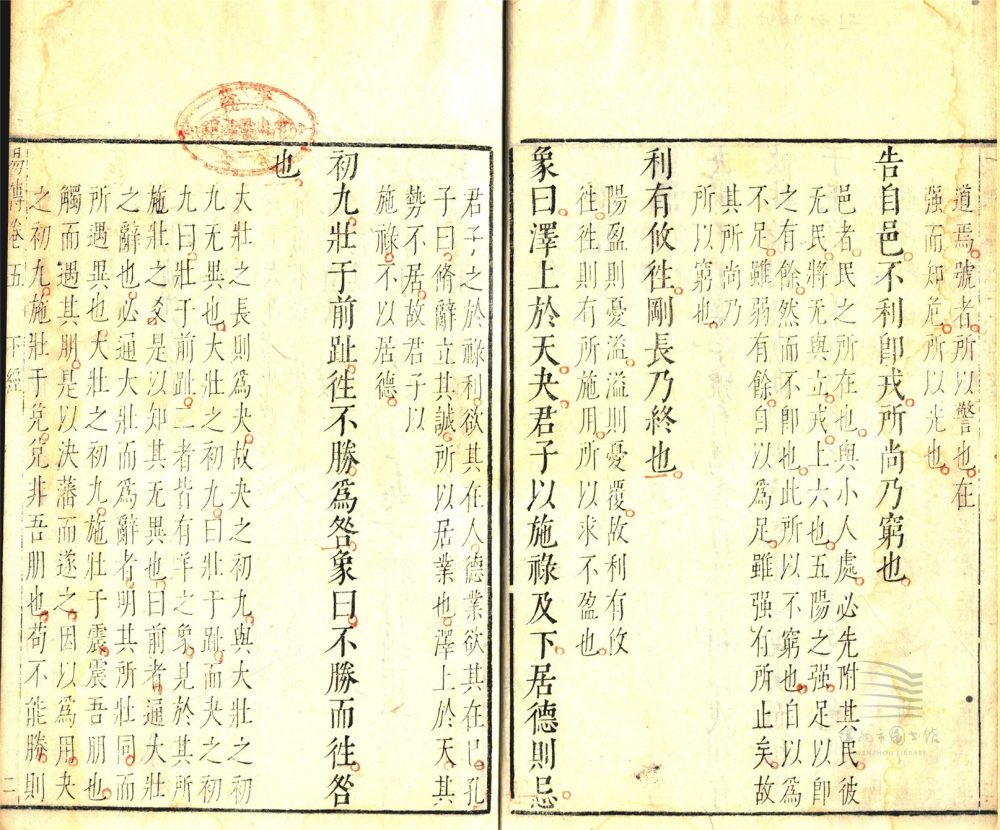 道焉號者所以警也在
强而知危所以光也
告自邑不利卽戎所尚乃窮也
邑者民之所在也與小人處必先附其民彼
无民將无與立戎上六也五陽之强足以卽
之有餘然而不卽也此所以不窮也自以爲
不足雖弱有餘自以爲足雖强有所止矣故
其所尚乃
所以窮也
利有攸徃剛長乃終也
陽盈則憂溢溢則憂覆故利有攸
徃徃則有所施用所以求不盈也
象曰澤上於天夬君子以施祿及下居德則忌
君子之於祿利欲其在人德業欲其在已孔
子曰脩辭立其誠所以居業也澤上於天其
勢不居故君子以
施祿不以居德
初九壯于前趾徃不勝爲咎象曰不勝而徃咎
也
大壯之長則爲夬故夬之初九與大壯之初
九无異也大壯之初九曰壯于趾而夬之初
九曰壯于前趾二者皆有羊之象見於其所
施壯之爻是以知其无異也曰前者通大壯
之辭也必通大壯而爲辭者明其所壯同而
所遇異也大壯之初九施壯于震震吾朋也
觸而遇其朋是以決藩而遂之因以爲用夬
之初九施壯于兌兌非吾朋也苟不能勝則
易傳卷五 下經 二
溫州市圖書館
WENZHOU LIBRARY